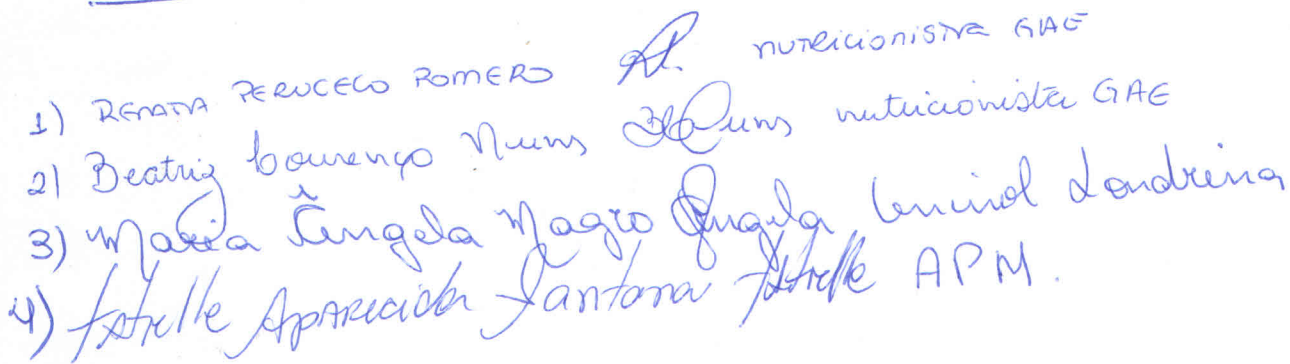 1) RENATA PERUCELO ROMERO nutricionista GAE
2) Beatriz Lourenço Nunes nutricionista GAE
3) Maria Ângela Magro Ângela Londrina
4) Estrelle Aparecida Santana Estrelle APM.